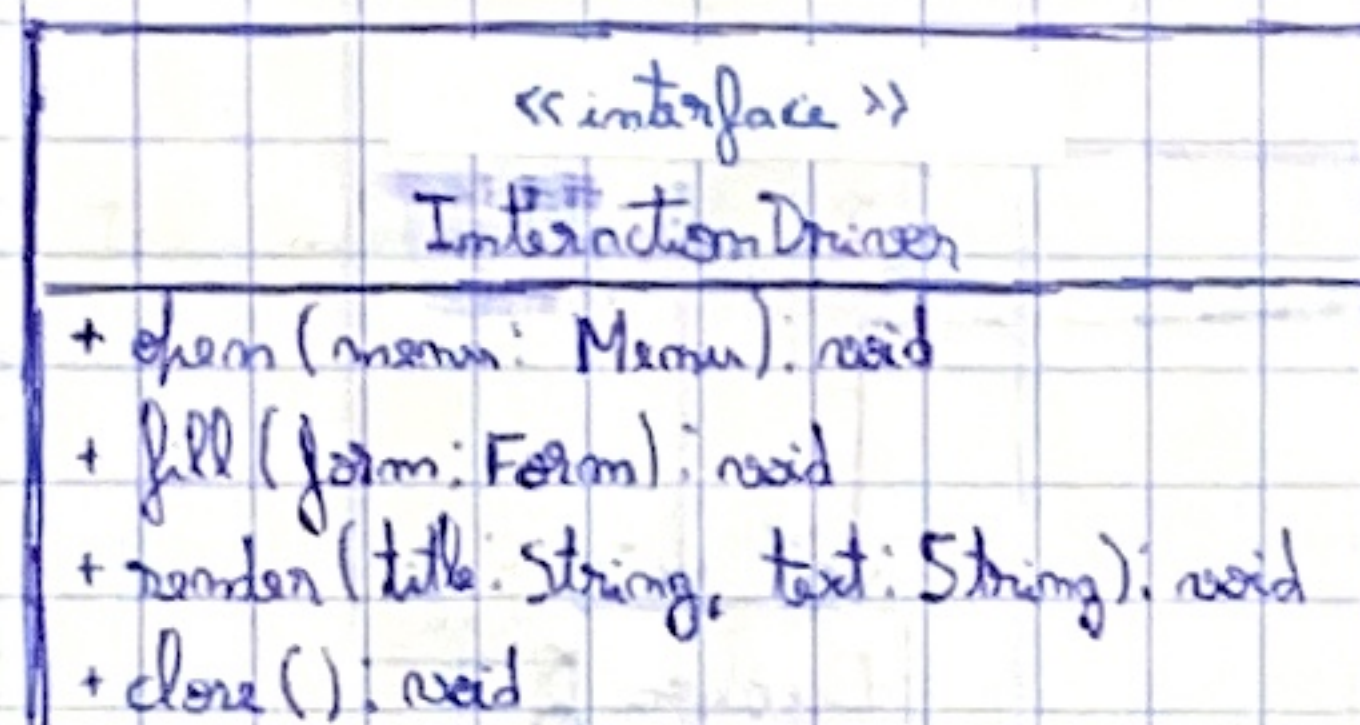 <<interface>>
InteractionDriver
+ open (menu: Menu): void
+ fill (form: Form): void
+ render (title: String, text: String): void
+ close (): void